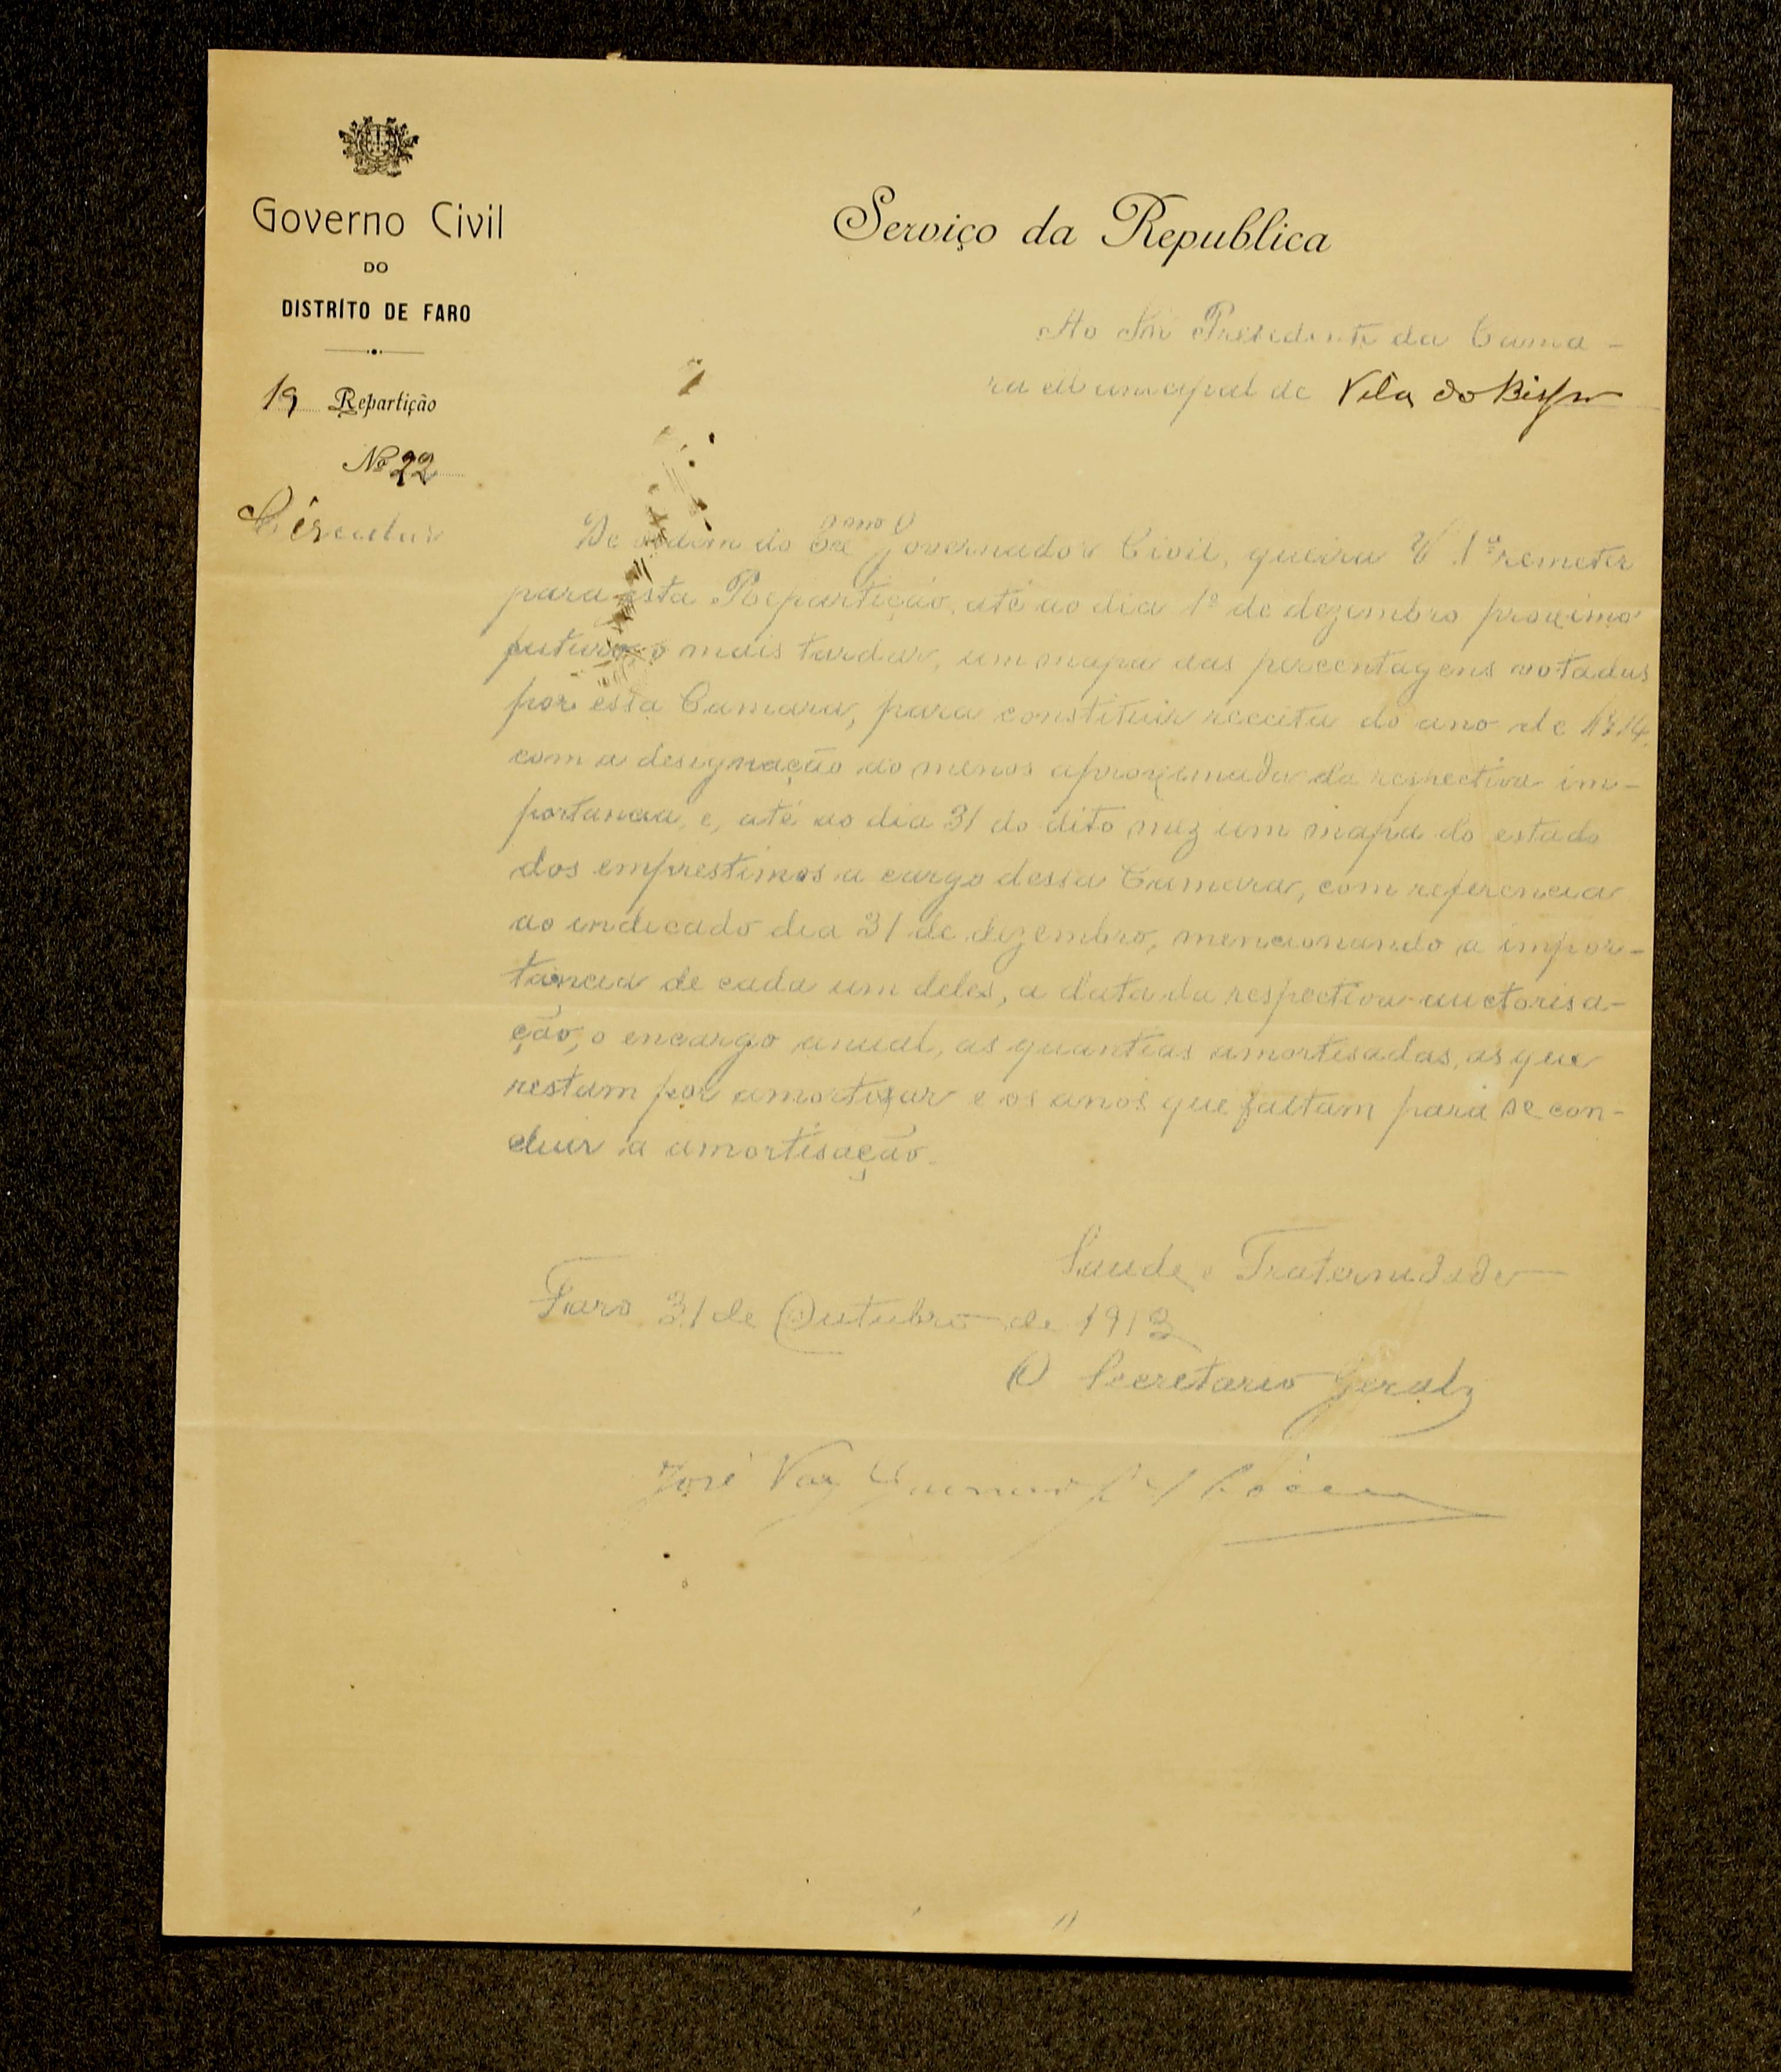 Governo Civil
DO
DISTRÍTO DE FARO
Serviço da Republica
Ao Snr Presidente da Cama-
ra Municipal de Vila do Bispo
1ª Repartição
Nº 22
Circular
De ordem do Exmo Governador Civil, queira V. Sª remeter
para esta Repartição, até ao dia 1º de dezembro proximo
futuro o mais tardar, um mapa das percentagens votadas
por essa Camara, para constituir receita do ano de 1914,
com a designação ao menos aproximada da respectiva im-
portancia, e, até ao dia 31 do dito mez um mapa do estado
dos emprestimos a cargo dessa Camara, com referencia
ao indicado dia 31 de dezembro, mencionando a impor-
tancia de cada um deles, a data da respectiva auctorisa-
ção, o encargo anual, as quantias amortisadas, as que
restam por amortizar e os anos que faltam para se con-
cluir a amortisação.
Saude e Fraternidade
Faro 31 de Outubro de 1913
O Secretario Geral
José Vaz